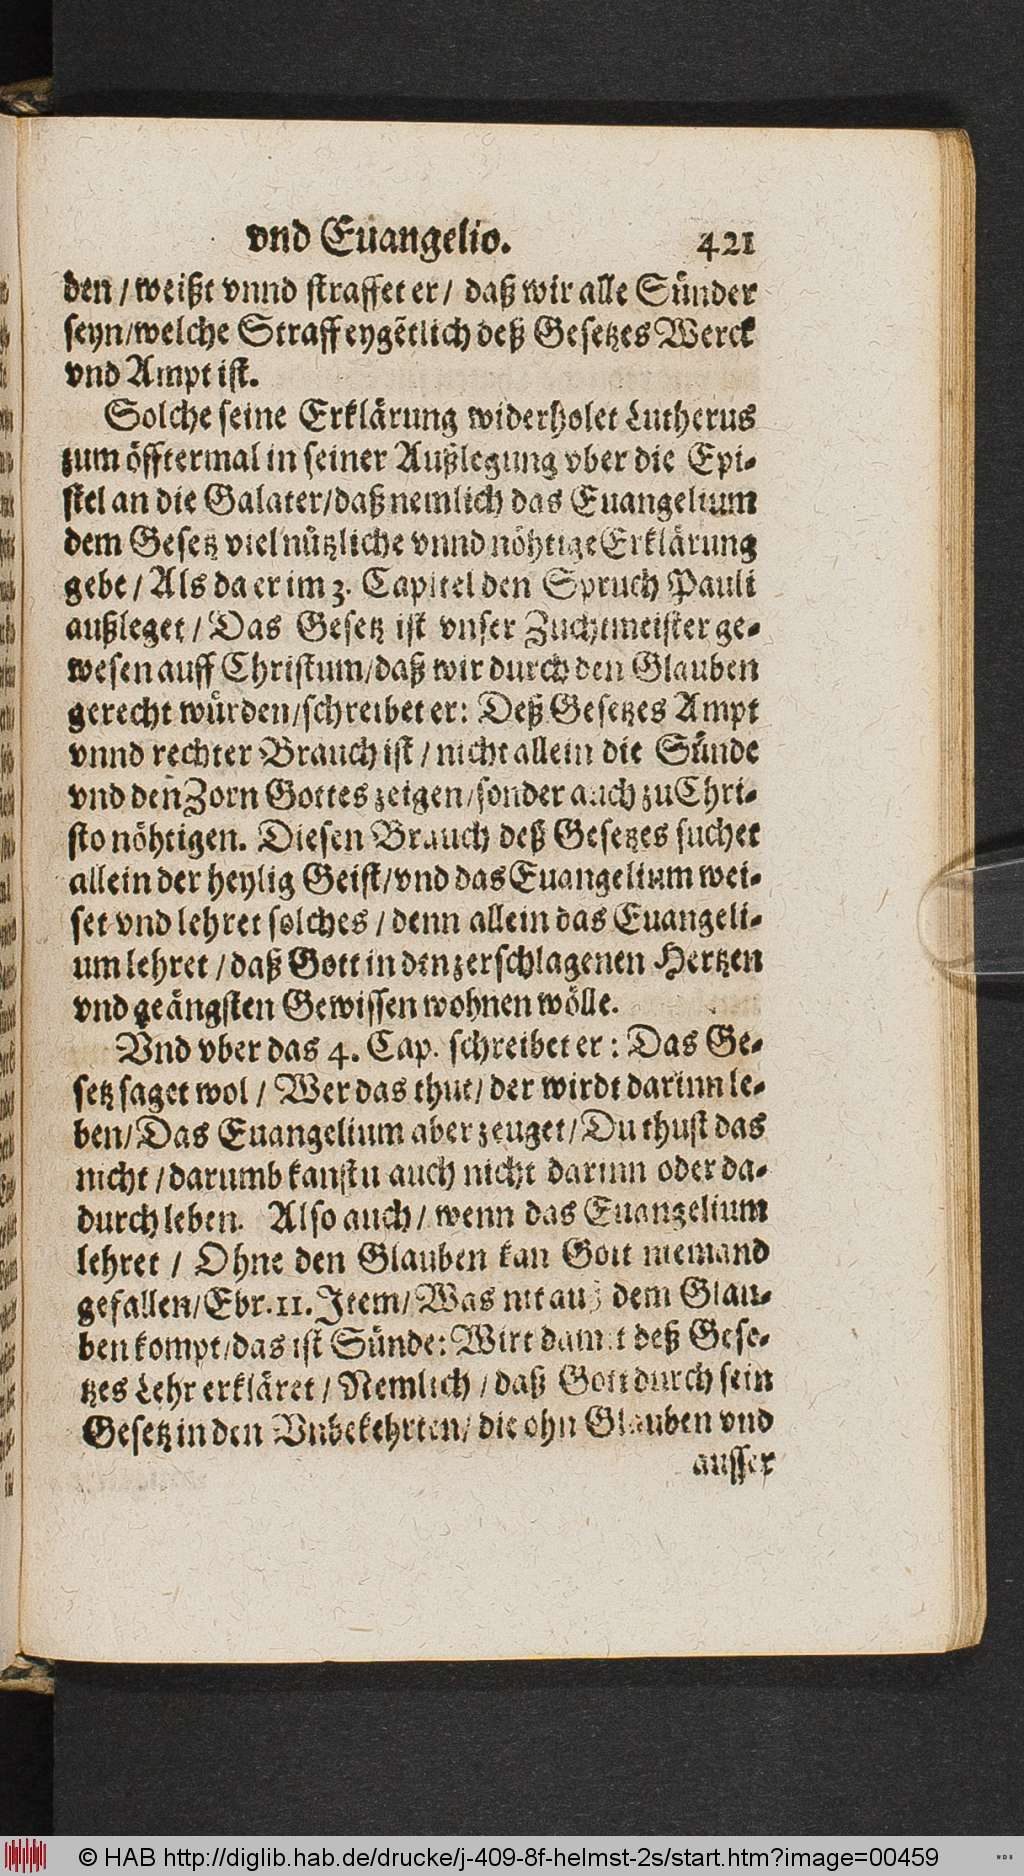 vnd Euangelio. 421
den / weißt vnnd straffet er / daß wir alle Sünder
seyn/welche Straff eygẽtlich deß Gesetzes Werck
vnd Ampt ist.
Solche seine Erklärung widerholet Lutherus
zum öfftermal in seiner Außlegung vber die Epi-
stel an die Galater/daß nemlich das Euangelium
dem Gesetz viel nützliche vnnd nöhtige Erklärung
gebe / Als da er im 3. Capitel den Spruch Pauli
außleget / Das Gesetz ist vnser Zuchtmeister ge-
wesen auff Christum/daß wir durch den Glauben
gerecht würden/schreibet er: Deß Gesetzes Ampt
vnnd rechter Brauch ist / nicht allein die Sünde
vnd den Zorn Gottes zeigen/sonder auch zu Chri-
sto nöhtigen. Diesen Brauch deß Gesetzes suchet
allein der heylig Geist/vnd das Euangelium wei-
set vnd lehret solches / denn allein das Euangeli-
um lehret / daß Gott in den zerschlagenen Hertzen
vnd geängsten Gewissen wohnen wölle.
Vnd vber das 4. Cap. schreibet er : Das Ge-
setz saget wol / Wer das thut/ der wirdt darinn le-
ben/Das Euangelium aber zeuget/Du thust das
nicht / darumb kanstu auch nicht darinn oder da-
durch leben. Also auch / wenn das Euangelium
lehret / Ohne den Glauben kan Gott niemand
gefallen/Ebr.11. Item/Was nit auß dem Glau-
ben kompt/das ist Sünde: Wirt damit deß Gese-
tzes Lehr erkläret / Nemlich / daß Gott durch sein
Gesetz in den Vnbekehrten/ die ohn Glauben vnd
ausser
© HAB http://diglib.hab.de/drucke/j-409-8f-helmst-2s/start.htm?image=00459